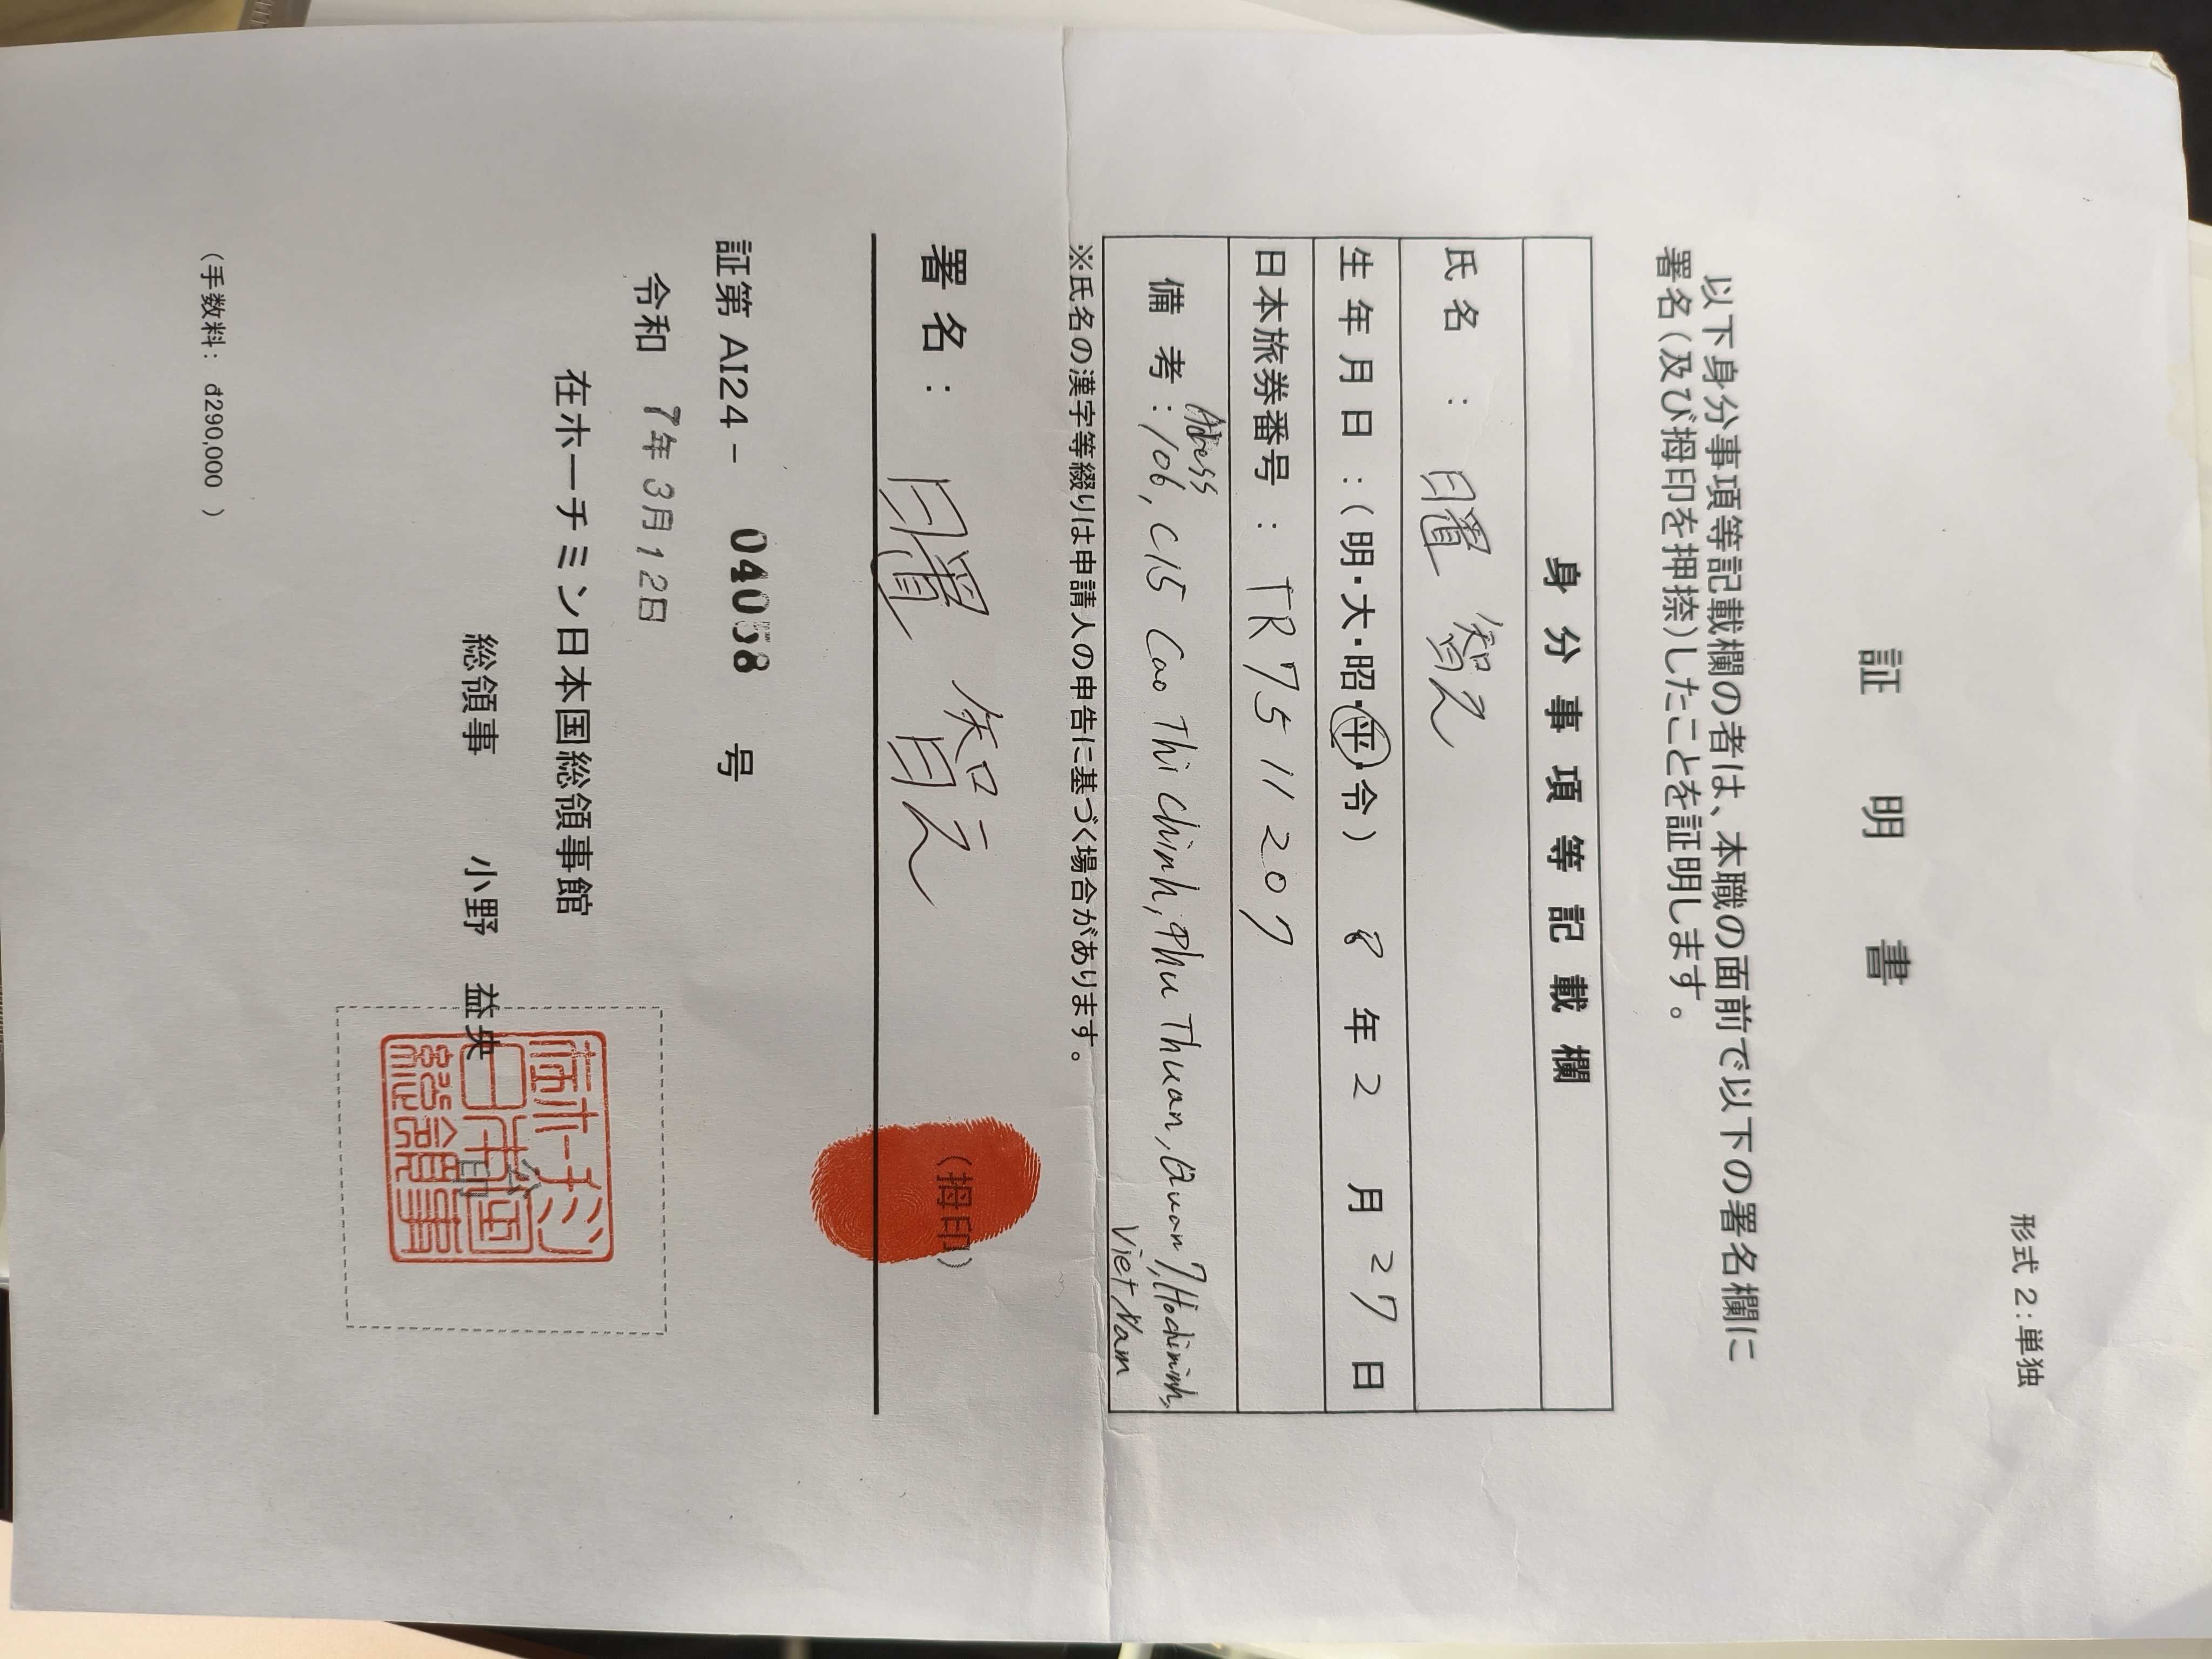 形式 2：単独
証 明 書
以下身分事項等記載欄の者は、本職の面前で以下の署名欄に
署名（及び拇印を押捺）したことを証明します。
身 分 事 項 等 記 載 欄
氏 名 ： 日置 智之
生 年 月 日 ：（明・大・昭・平・令） 8 年 2 月 27 日
日本旅券番号 ： TR7511207
Adress
備 考 ：106, C15 Cao Thi Chinh, Phu Thuan, Quan 7, Hochiminh,
Viet Nam
※氏名の漢字等綴りは申請人の申告に基づく場合があります。
署 名 ： 日置 智之 （拇印）
証第 AI24－ 04058 号
令和 7年 3月 12日
在ホーチミン日本国総領事館
総領事 小野 益央
公
印
在ホーチミン
日本国
総領事
（手数料： đ290,000 ）